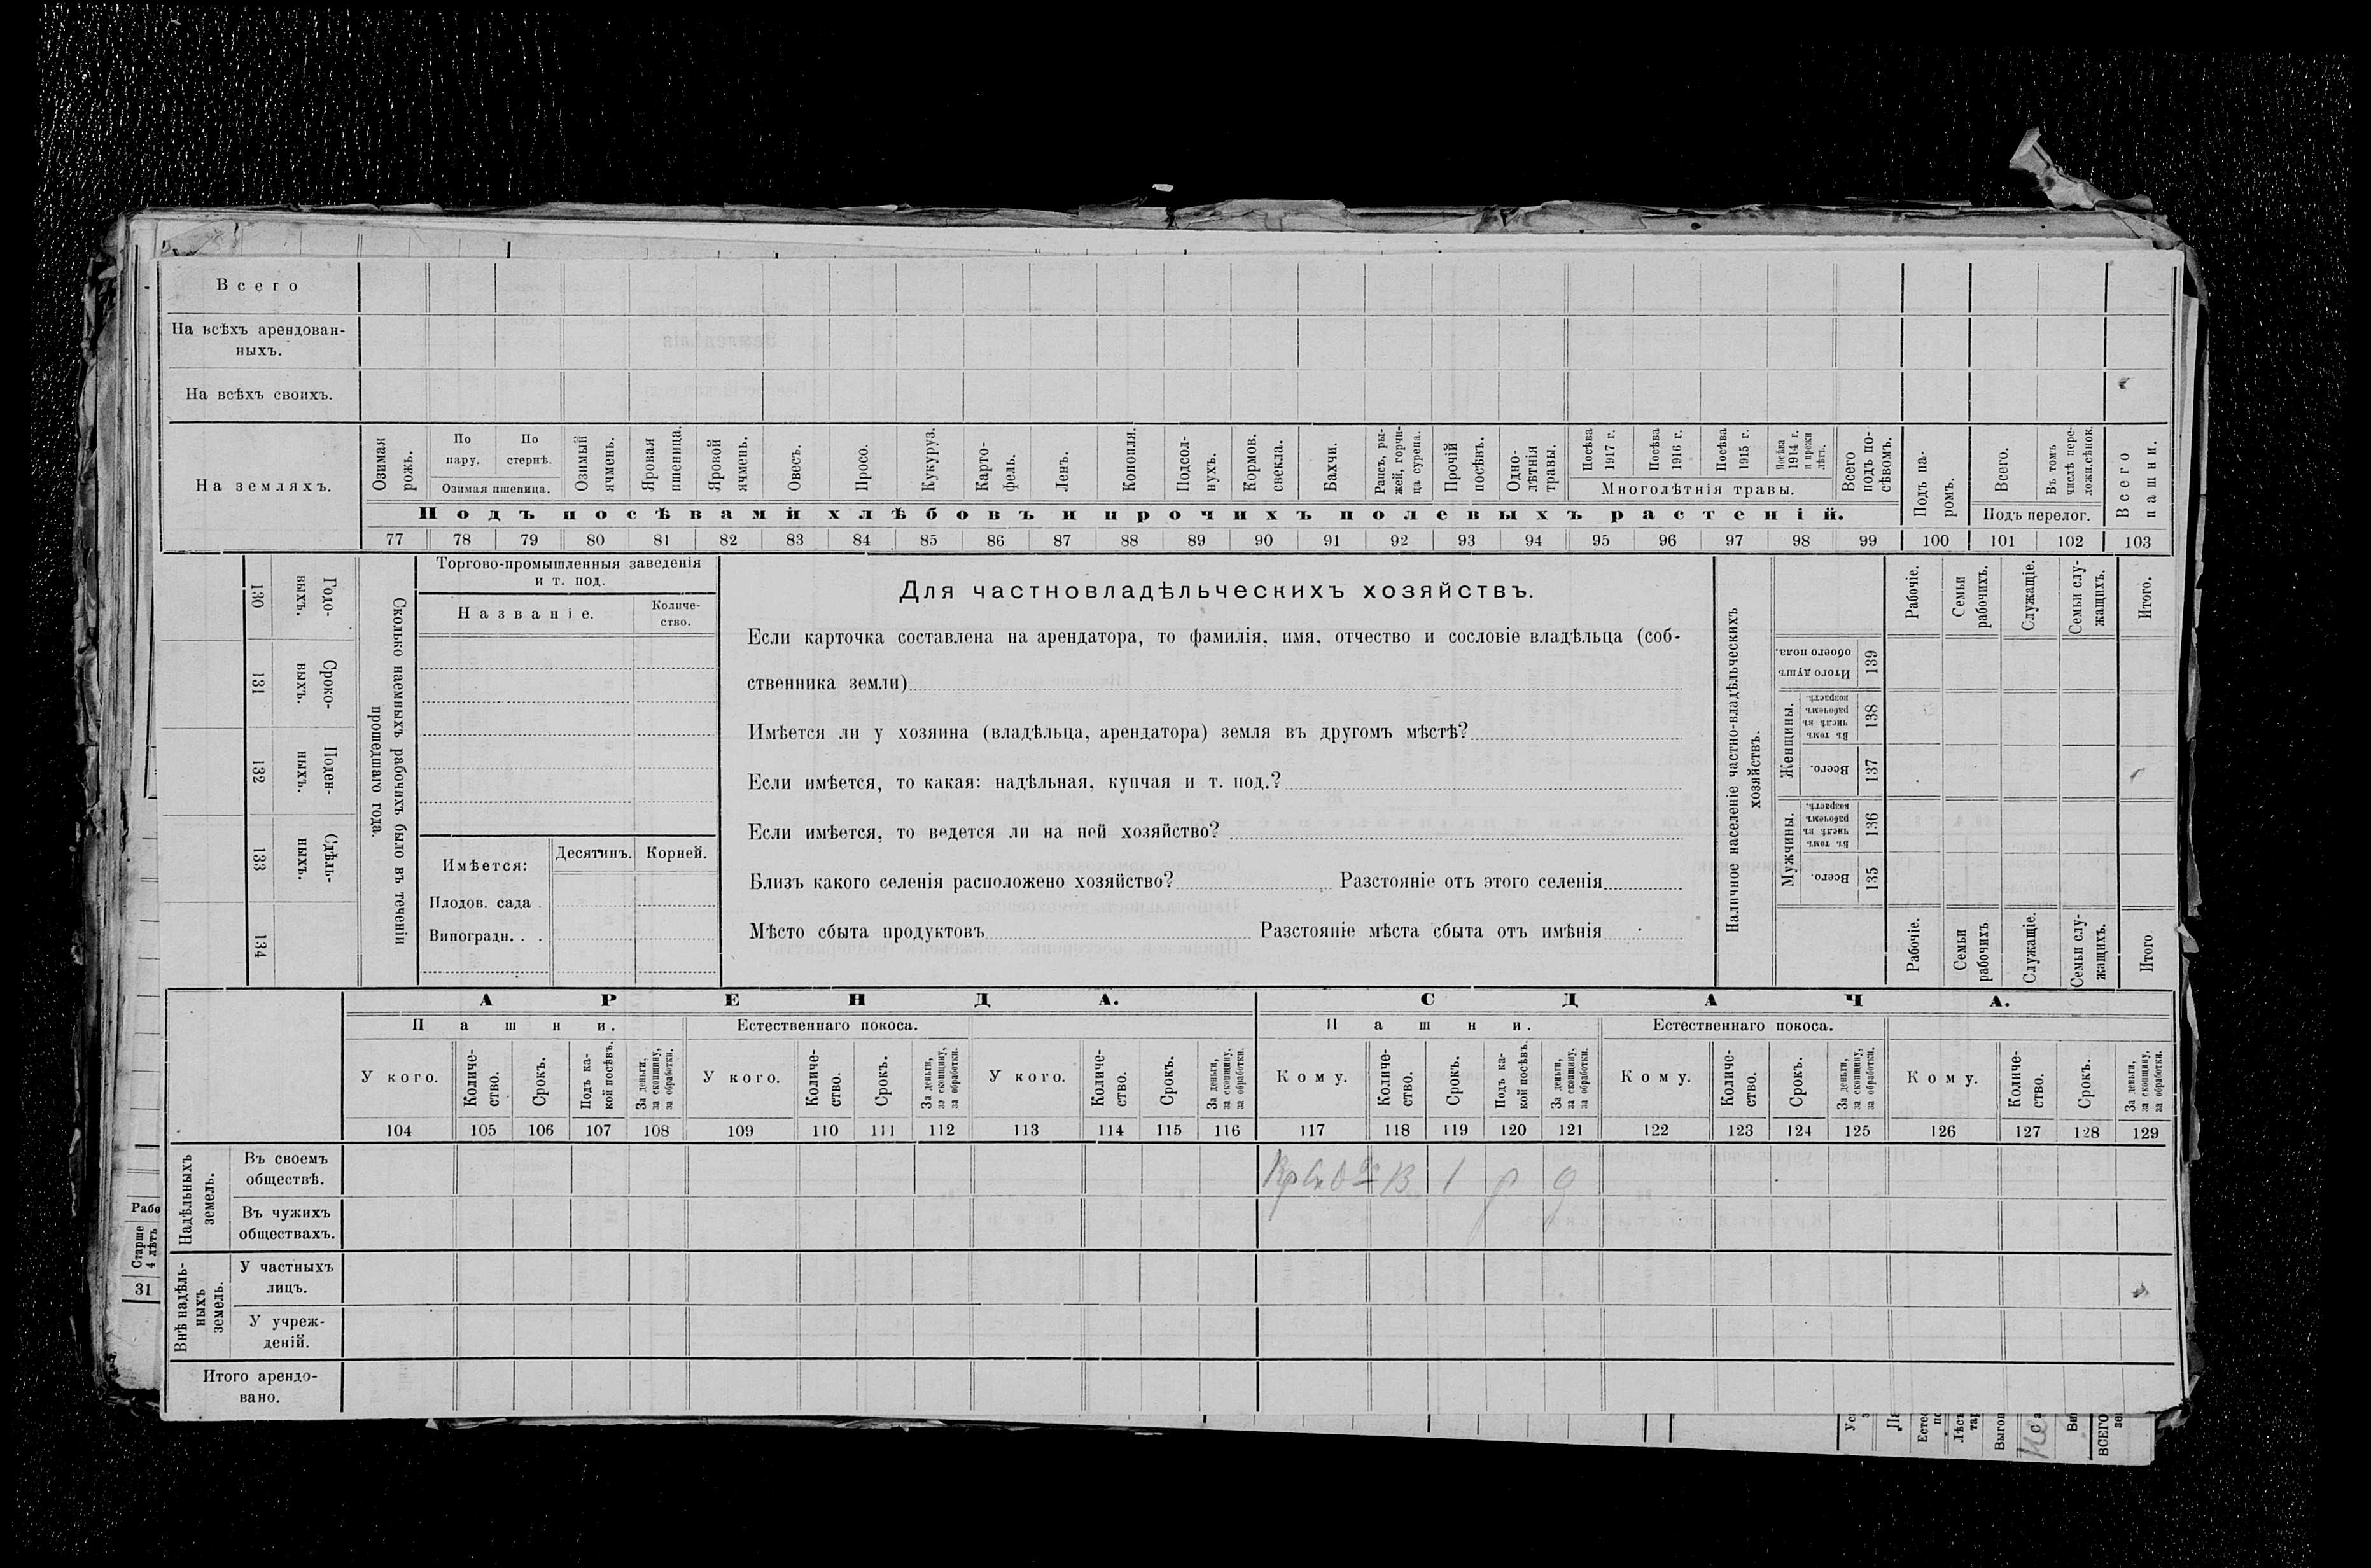 Всего
На всѣхъ арендован-
ныхъ.
На всѣхъ своихъ.
На земляхъ.
Озимая рожь.
По пару.
По стернѣ.
Озимая пшеница.
Озимый ячмень.
Яровая пшеница.
Яровой ячмень.
Овесъ.
Просо.
Кукуруз.
Карто-
фель.
Ленъ.
Конопля.
Подсол-
нухъ.
Кормов. свекла.
Бахчи.
Рапсъ, ры-
жей, горчи-
ца сурепа.
Прочій посѣвъ.
Одно-
лѣтнія травы.
Посѣва 1917 г.
Посѣва 1916 г.
Посѣва 1915 г.
Посѣва 1914 г. и прежн лѣтъ.
Многолѣтнія травы.
Всего подъ по-
сѣвомъ.
Подъ па-
ромъ.
Всего.
Въ томъ числѣ пере-
ложн.сѣнок.
Подъ перелог.
Всего пашни.
Подъ посѣвами хлѣбовъ и прочихъ полевыхъ растеній.
77 78 79 80 81 82 83 84 85 86 87 88 89 90 91 92 93 94 95 96 97 98 99 100 101 102 103
Сколько наемныхъ рабочихъ было въ теченіи
прошедшаго года.
Годо-
ныхъ.
130
Сроко-
выхъ.
131
Поден-
ныхъ.
132
Сдѣль-
ныхъ.
133
134
Торгово-промышленныя заведенія
и т. под.
Названіе.
Количе-
ство.
Имѣется:
Десятинъ.
Корней.
Плодов. сада
Виноградн. . .
Для частновладѣльческихъ хозяйствъ.
Если карточка составлена на арендатора, то фамилія, имя, отчество и сословіе владѣльца (соб-
ственника земли)
Имѣется ли у хозяина (владѣльца, арендатора) земля въ другомъ мѣстѣ?
Если имѣется, то какая: надѣльная, купчая и т. под.?
Если имѣется, то ведется ли на ней хозяйство?
Близъ какого селенія расположено хозяйство? Разстояніе отъ этого селенія
Мѣсто сбыта продуктовъ Разстояніе мѣста сбыта отъ имѣнія
Наличное населеніе частно-владѣльческихъ
хозяйствъ.
Рабочіе.
Семьи рабочихъ.
Служащіе.
Семьи слу-
жащихъ.
Итого.
Итого душъ обоего пола.
139
Женщины.
Въ томъ числѣ въ рабочемъ возрастѣ.
138
Всего.
137
Мужчины.
Въ томъ числѣ въ рабочемъ возрастѣ.
136
Всего.
135
Рабочіе.
Семьи рабочихъ
Служащіе.
Семьи слу-
жащихъ.
Итого
АРЕНДА.
СДАЧА.
Пашни.
Естественнаго покоса.
Пашни.
Естественнаго покоса.
У кого.
Количе-
ство.
Срокъ.
Подъ ка-
кой посѣвъ.
За деньги, за скопщину, за обработки.
У кого.
Количе-
ство.
Срокъ.
За деньги, за скопщину, за обработки.
У кого.
Количе-
ство.
Срокъ.
За деньги, за скопщину, за обработки.
Кому.
Количе-
ство.
Срокъ.
Подъ ка-
кой посѣвъ.
За деньги, за скопщину, за обработки.
Кому.
Количе-
ство.
Срокъ.
За деньги, за скопщину, за обработки.
Кому.
Количе-
ство.
Срокъ.
За деньги, за скопщину, за обработки.
104 105 106 107 108 109 110 111 112 113 114 115 116 117 118 119 120 121 122 123 124 125 126 127 128 129
Надѣльныхъ земель.
Въ своемъ
обществѣ.
1
Въ чужихъ
обществахъ.
Внѣ надѣль-
ныхъ земель.
У частныхъ
лицъ.
У учреж-
деній.
Итого арендо-
вано.
Рабо
Старше
4 лѣтъ
31
Выгон
ВСЕГО